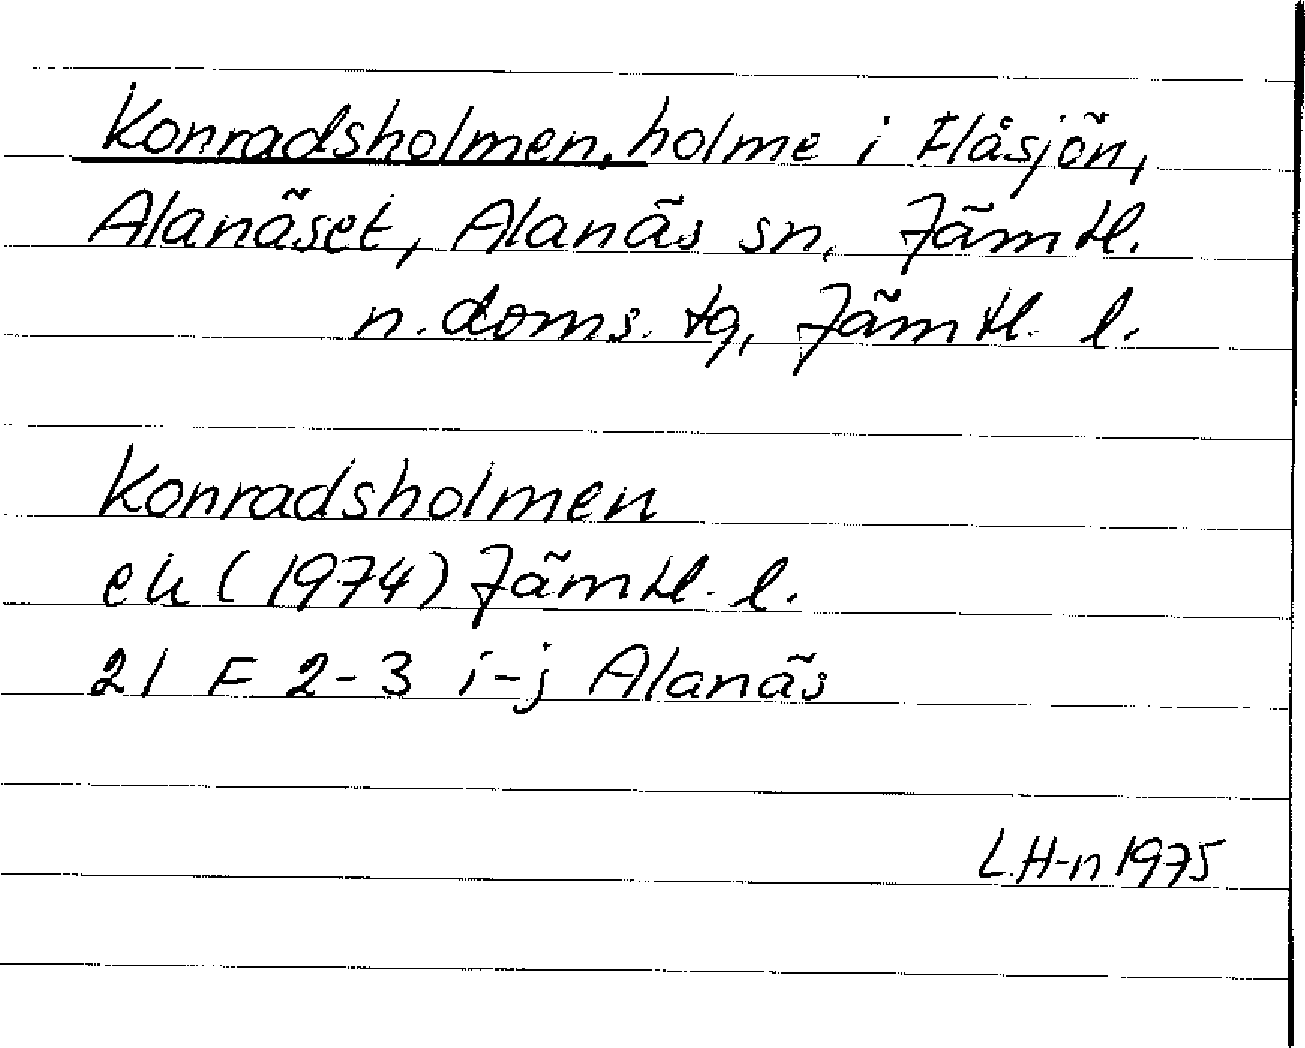 Konradsholmen, holme i Flåsjön,
Alanäset, Alanäs sn, Jämtl.
n. doms. tg, Jämtl. l.
Konradsholmen
ek (1974) Jämtl. l.
21 F 2-3 i-j Alanäs
L.H-n 1975